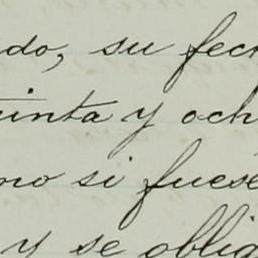 do, su fec
einta y och
mo si fuese
y se oblig